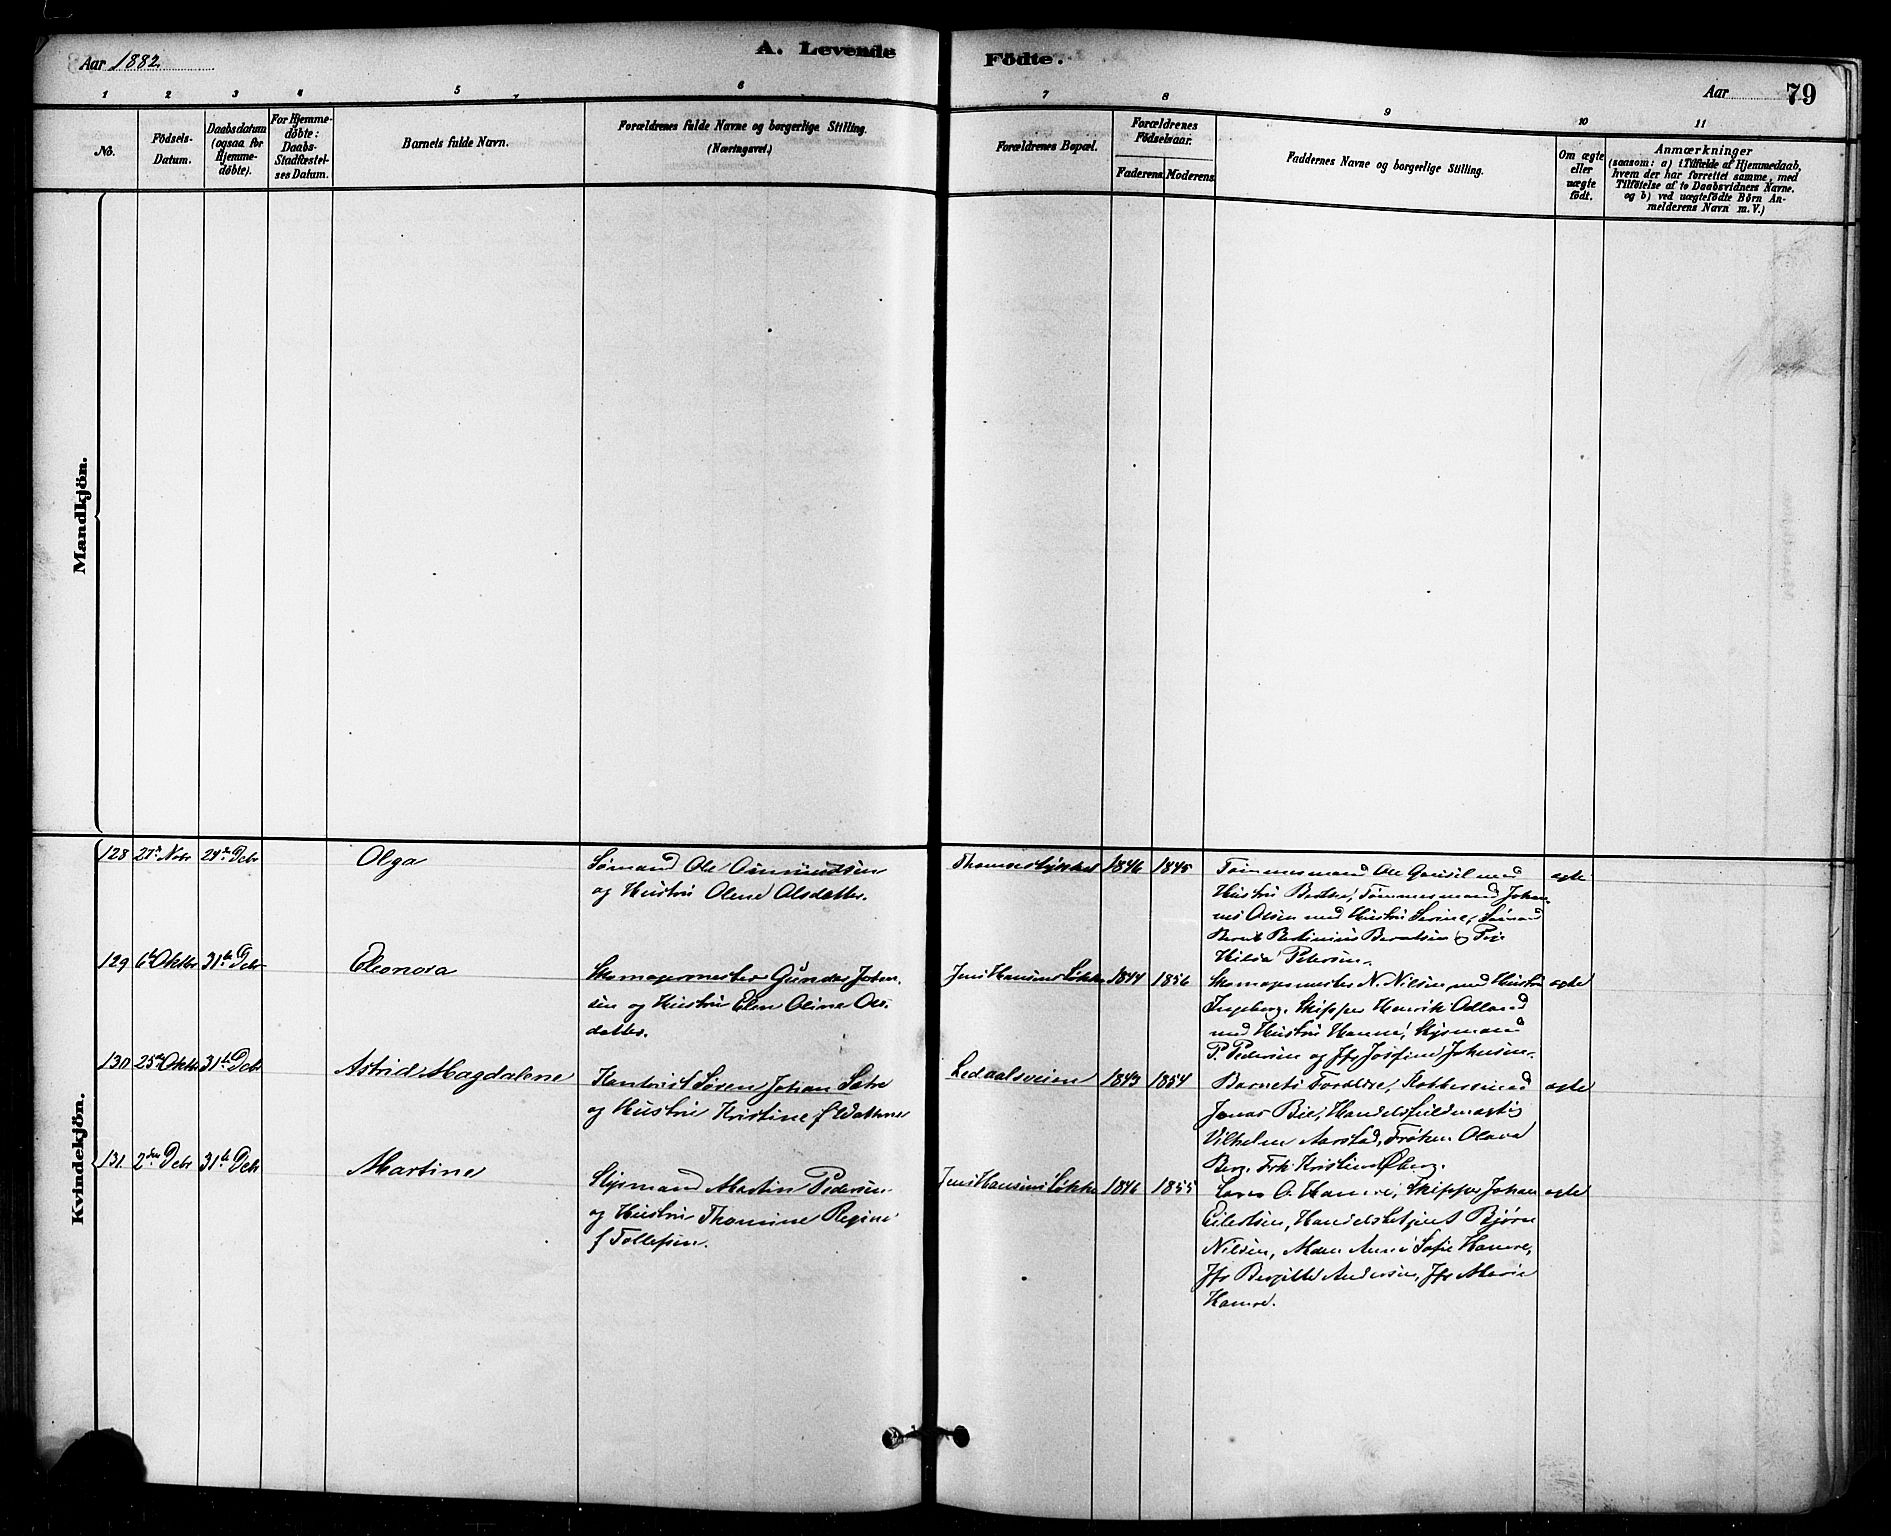 Aar 1882.
A. Levende
Födte.
Aar
79
1
2
3
4
5
6
7
8
9
10
11
No.
Födsels-
Datum.
Daabsdatum
(ogsaa for
Hjemme-
døbte).
For Hjemme-
døbte:
Daabs-
Stadfæstel-
ses Datum.
Barnets fulde Navn.
Forældrenes fulde Navne og borgerlige Stilling.
(Næringsvei.)
Forældrenes Bopæl.
Forældrenes
Födselsaar.
Faderens.
Moderens.
Faddernes Navne og borgerlige Stilling.
Om ægte
eller
uægte
födt.
Anmærkninger
(saasom: a) i Tilfælde af Hjemmedaab,
hvem der har forrettet samme, med
Tilföielse af to Daabsvidners Navne.
og b) ved uægtefödte Börn An-
melderens Navn m. V.)
Mandkjön.
Kvindekjön.
128 27de Novbr
Olga
Sømand Ole
og Hustru Olene Olsdatter.
1846 1845
Tømmermand Ole Gausel med
Hustru Tømmermand Johan-
nes Olsen med Hustru Serine, Sømand
Berntsen og Pige
Petersen.
ægte
129 6te Oktbr 31te Debr
Eleonora
Skomagermester Gunder John-
sen og Hustru Elen Oline Ols-
datter.
Jens Hansens Løkke 1844 1856
Skomagermester N. Nilsen med Hustru
Ingeborg, Skipper Henrik Odland
med Hustru Hanne,
P. Pedersen og Jfr Josefine Johnsen.
ægte
130 25de Oktbr 31te Debr
Astrid Magdalene
Søren Johan
og Hustru Kristine f.
Ledaalsveien 1843 1854
Barnets Forældre,
Jonas Handelsfuldmægtig
Vilhelm Aarstad, Frøken Olava
Berg, Frk Kristine Øberg.
ægte
131 2den Debr 31te Debr
Martine
Martin Pedersen
og Hustru Thomine Regine
f. Tollefsen.
Jens Hansens Løkke 1846 1855
O. Hamre, Skipper Johan
Eilertsen, Handelsbetjent Bjørn
Nilsen, Anne Sofie Hamre,
Jfr Bergitte Andersen, Jfr Maria
Hamre.
ægte